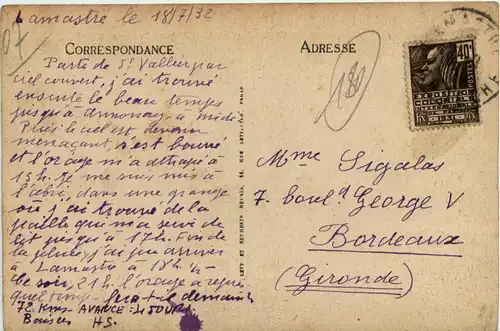 Lamastre le 18/7/32
CORRESPONDANCE
Partie de St Vallier par
ciel couvert, j'ai trouvé
ensuite le beau temps
jusqu'à Annonay à midi
Puis le ciel est devenu
menaçant, s'est bourré
et l'orage m'a attrapé à
15h. Je me suis mis à
l'abri dans une grange
où j'ai trouvé de la
paille qui m'a servi de
lit jusqu'à 17h. Fin de
la pluie, j'ai pu arriver
à Lamastre à 18h ½
Ce soir, 21h l'orage a repris
quel temps fera-t-il demain
72 Kms AVANCE: 4 JOURS.
Baisers
ADRESSE
180
40c
POSTES
EXPOSITION
COLONIALE
INTERNATIONALE
PARIS
Mme Sigalas
7. boul.d George V
Bordeaux
(Gironde)